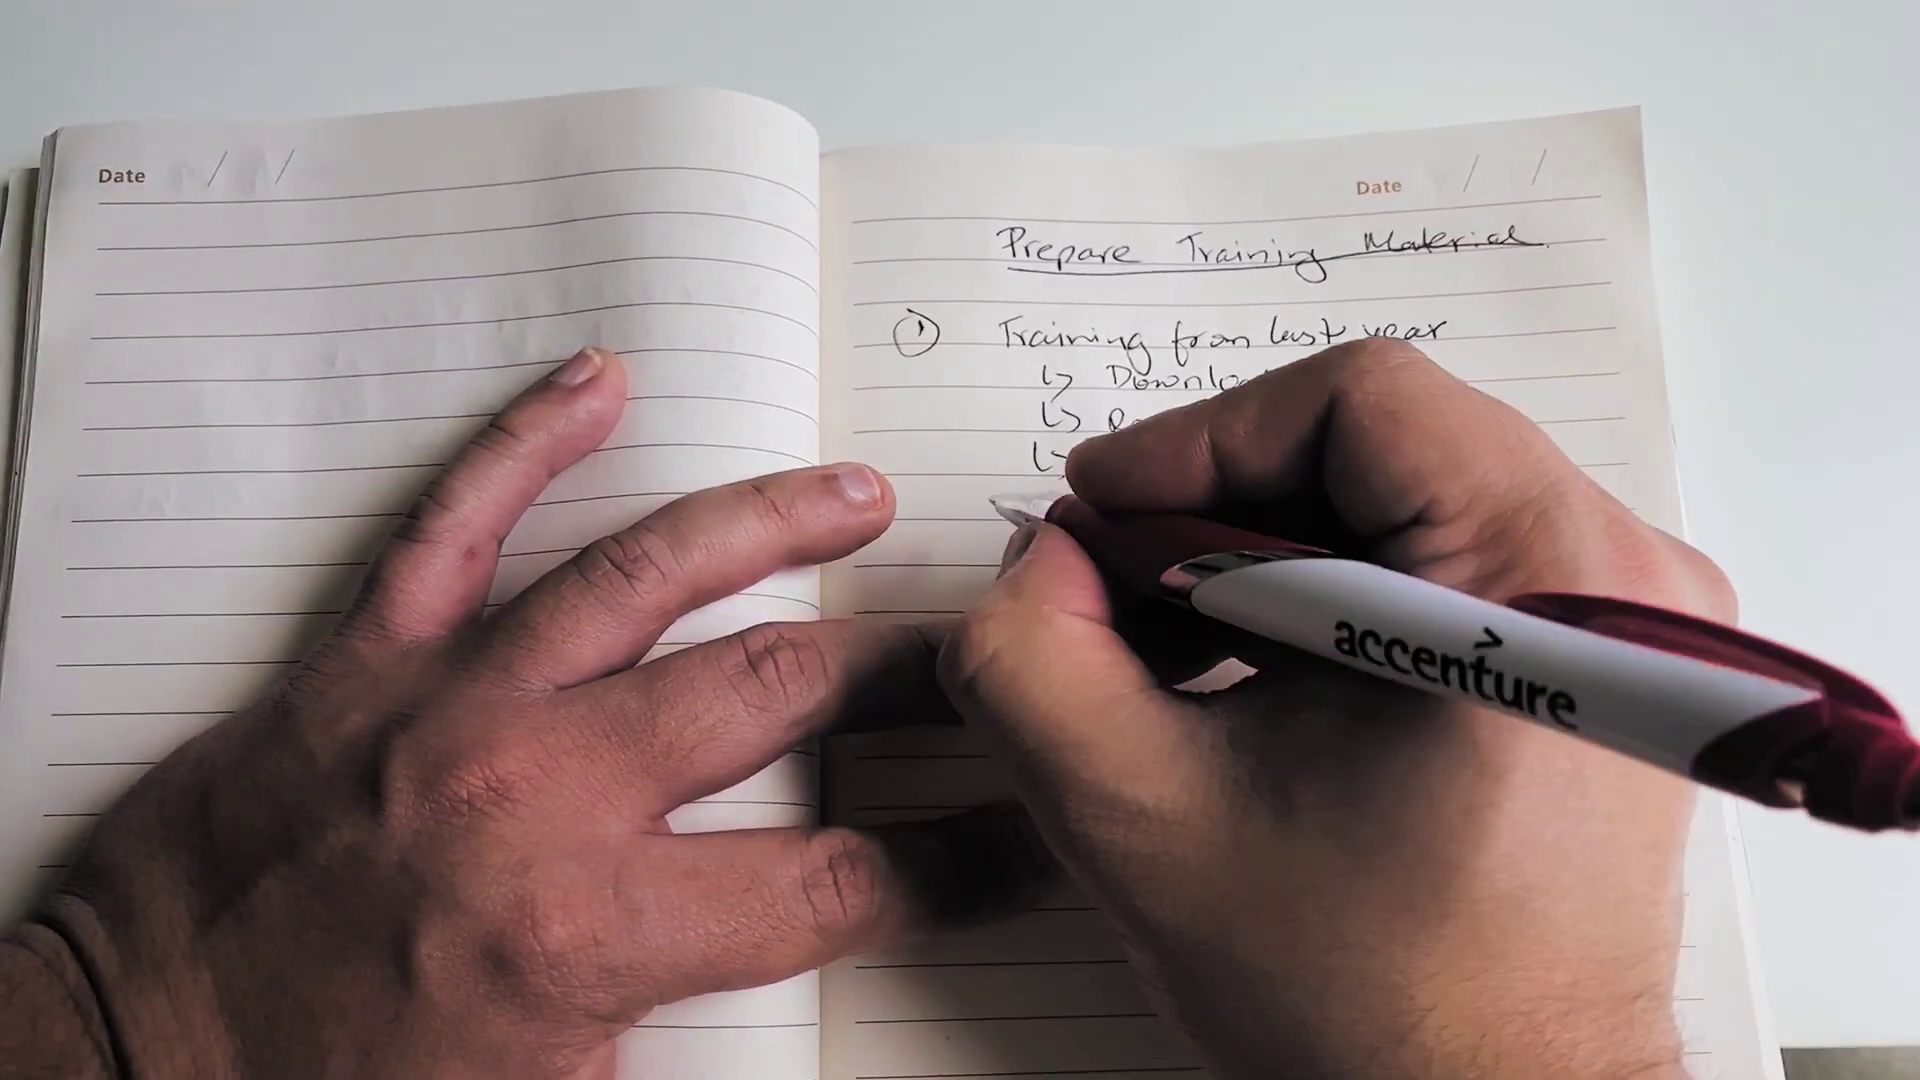 Date / /
Date / /
Prepare Training Material
① Training from last year
↳
↳
↳
accenture